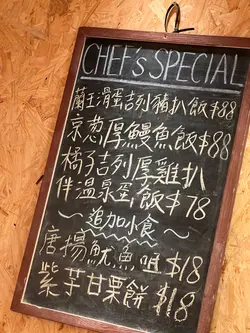 CHEF's SPECIAL
蘭王滑蛋吉列豬扒飯$88
京葱厚鰻魚飯$88
橘子吉列厚雞扒
伴溫泉蛋飯$78
～追加小食～
唐揚魷魚咀$18
紫芋甘栗餅$18